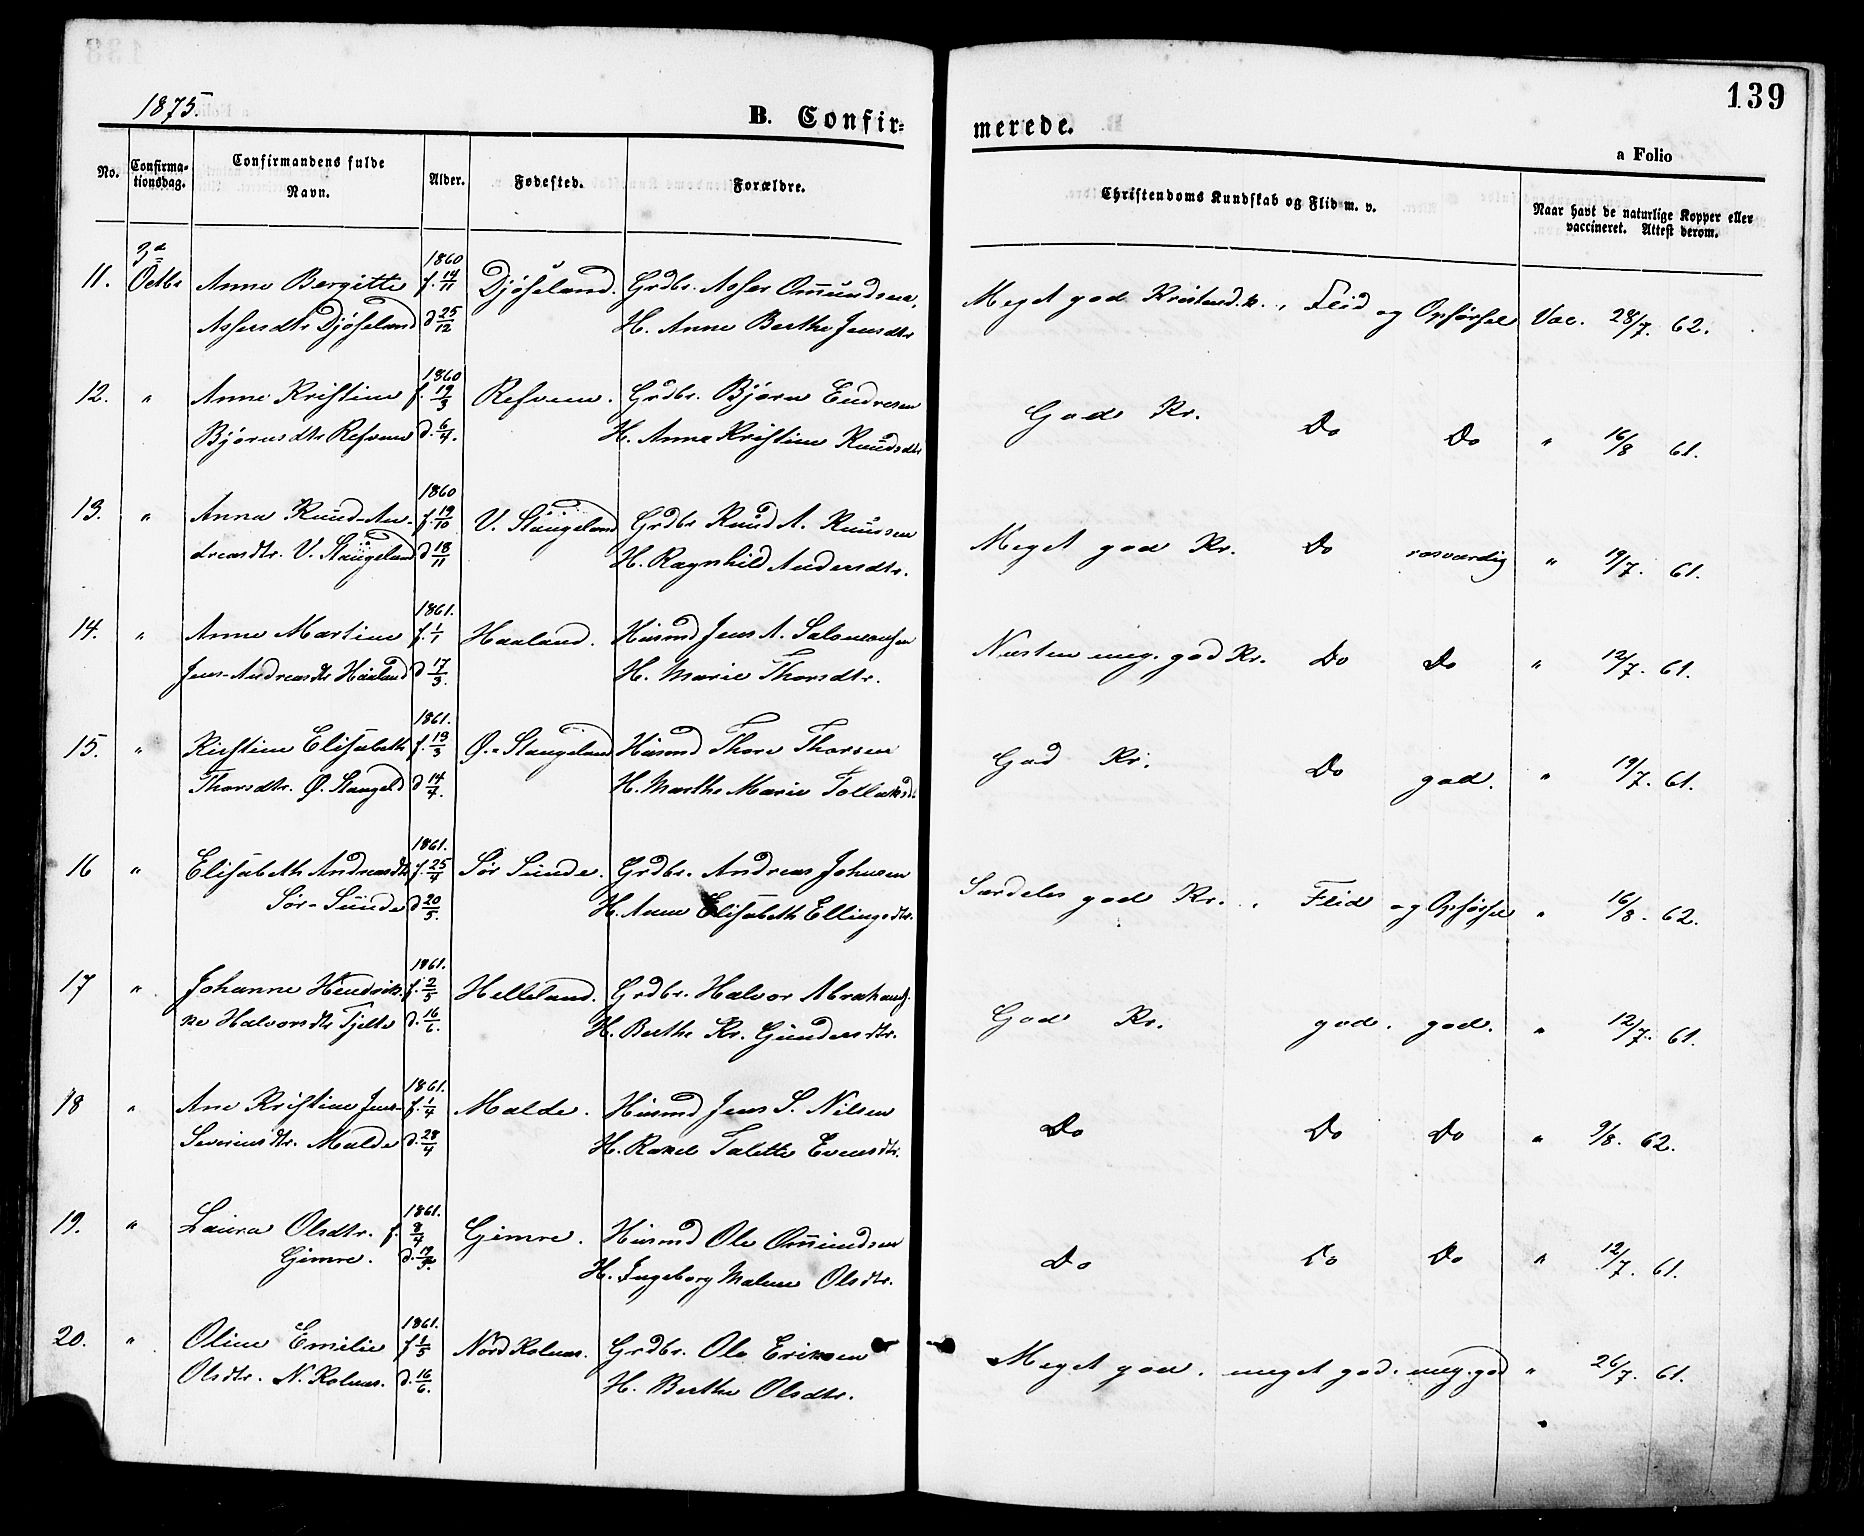 139
1875.
B. Confir=
merede.
a Folio
No.
Confirma-
tionsdag.
Confirmandens fulde
Navn.
Alder.
Fødested.
Forældre.
Christendoms Kundskab og Flid m. v.
Naar havt de naturlige Kopper eller
vaccineret. Attest derom.
3d 1860
11. Octbr Anne Bergitte f. 14/11 Djøseland. Grdbr. Asser Omundsen, Meget god Kristend.k., Fliid og Opførsel Vac. 28/7. 62.
Assersdtr Djøseland d 25/12 H. Anne Berthe Jensdtr
1860
12. " Anne Kristine f. 19/3 Refvem. Grdbr. Bjørn Endresen God Kr. Do Do " 16/8 61.
Bjørnsdtr Refvem d. 6/4. H. Anne Kristine Knudsdtr
1860
13. " Anna Knud-An- f. 19/10 V. Stangeland Grdbr Knud A. Knudsen Meget god Kr. Do rosværdig " 19/7. 61.
dreasdtr. V. Stangeland d 18/11 H. Ragnhild Andersdtr.
1861.
14. " Anne Martine f. 1/1 Haaland. Husmd Jens A. Salomonsen Næsten meg. god Kr. Do Do " 12/7. 61.
Jens-Andreasdtr Haaland d 17/3. H. Marie Thorsdtr.
1861.
15. " Kirstine Elisabeth f. 13/3 Ø. Stangeland Husmd Thore Thorsen God Kr. Do god. " 19/7. 61.
Thorsdtr. Ø. Stangeld d 14/4. H. Marthe Marie Tollaksd.
1861.
16 " Elisabeth Andreasdtr f. 25/4 Sør Sunde. Grdbr. Andreas Johnsen Særdeles god Kr., Fliid og Opførsel " 16/8. 62.
Sør-Sunde d 20/5. H. Anne Elisabeth Ellingsdtr.
1861.
17 " Johanne Hendrik- f. 2/5 Helleland. Grdbr. Halvor Abrahams. God Kr. god. god. " 12/7. 61.
ke Halvorsdtr Tjelte d. 16/6. H. Berthe Kr. Gundersdtr.
1861.
18 " Ane Kristine Jens- f. 1/4 Malde. Husmd Jens S. Nilsen Do Do Do " 9/8. 62.
Severinsdtr. Malde d. 28/4 H. Rakel Talette Evensdtr.
1861.
19. " Laura Olsdtr. f. 8/4 Gimre. Husmd Ole Omundsen Do Do Do " 12/7. 61.
Gimre. d. 19/5. H. Ingeborg Malene Olsdtr.
1861.
20. " Oline Emilie f 1/5 Nord Kolnes. Grdbr. Ole Eriksen Meget god. meget god. meg. god " 26/7. 61.
Olsdtr. N. Kolnes. d. 16/6. H. Berthe Olsdtr.